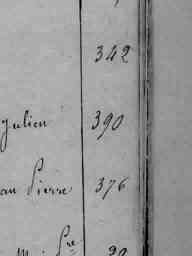 342
Julien 390
an Pierre 376